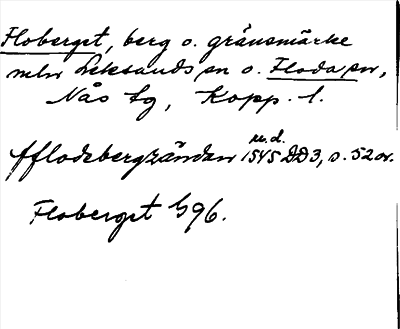 Floberget, berg o. gränsmärke
mln Leksands sn o. Floda sn,
Nås tg, Kopp. l.
u.d.
fflodebergzändan 1545 DD3, s. 52 or.
Floberget G96.